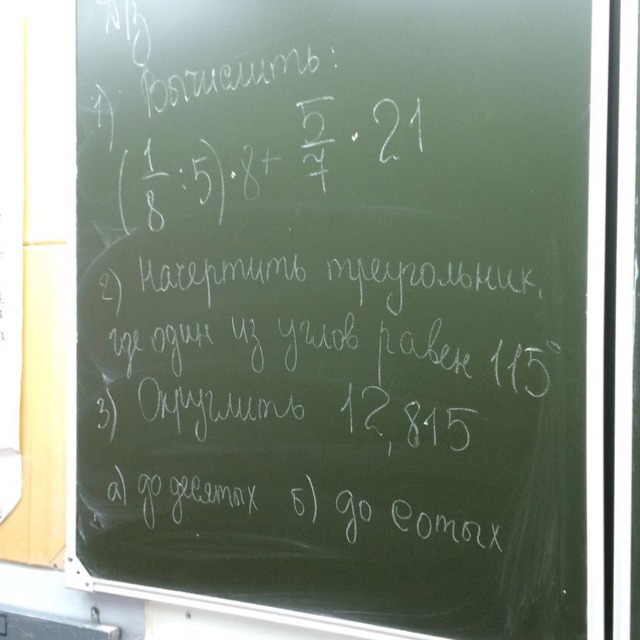 Д/З
1) Вычислить:
(1/8 : 5) · 8 + 5/7 · 21
2) Начертить треугольник,
где один из углов равен 115°
3) Округлить 12,815
а) до десятых б) до сотых